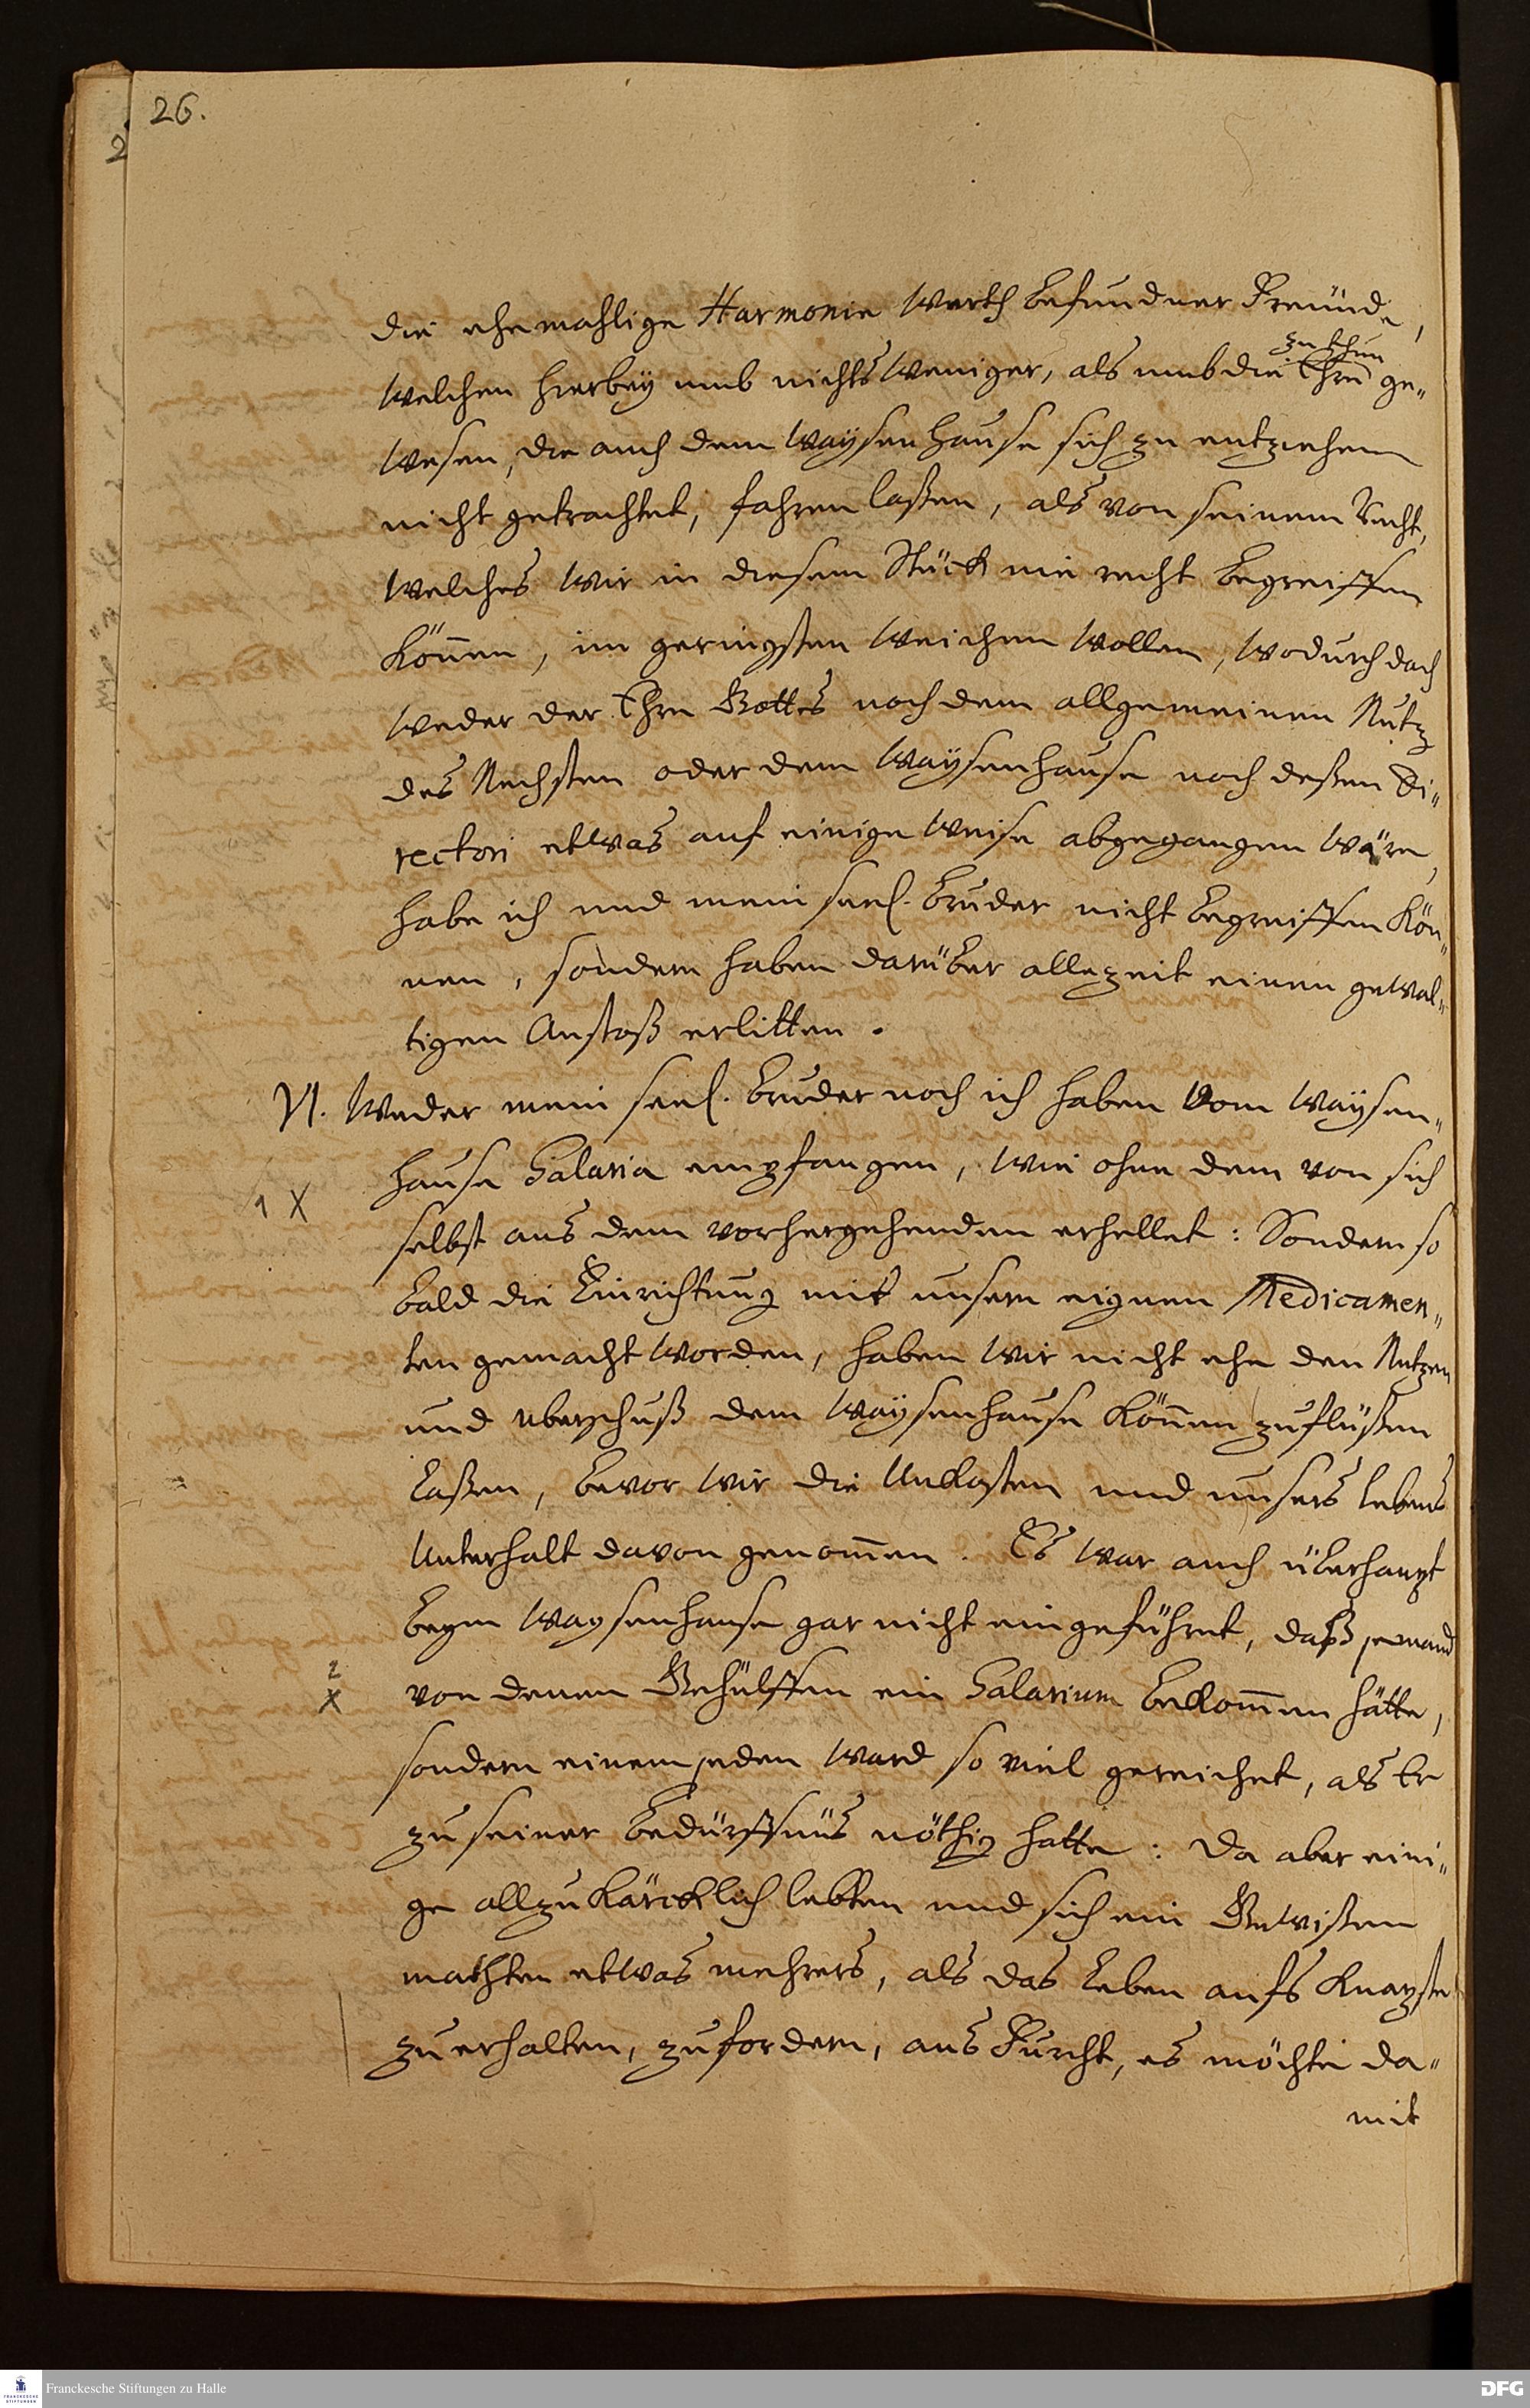 26.
2
die ehemahlige Harmonie werth befundner Freünde,
zu thun
welchen hierbey umb nichts weniger, als umb die Ehre ge-
wesen, die auch dem Waÿsenhause sich zu entziehen
nicht getrachtet, fahren laßen, als von seinem Recht,
welches wir in diesem Stück nie recht begreiffen
können, im geringsten weichen wollen, wodurch doch
weder der Ehre Gottes noch dem allgemeinen Nutz
des Nechsten oder dem Waÿsenhause noch deßen Di-
rectori etwas auf einige Weise abgegangen wäre,
habe ich und mein seel. Bruder nicht begreiffen kön-
nen, sondern haben darüber allezeit einen gewal-
tigen Anstoß erlitten.
VI. Weder mein seel. Bruder noch ich haben vom Waÿsen-
hause Salaria empfangen, wie ohne dem von sich
1 X
selbst aus dem vorhergehenden erhellet: Sondern so
bald die Einrichtung mit unsern eignen Medicamen-
ten gemacht worden, haben wir nicht ehe den Nutzen
und uberschuß dem Waÿsenhause können zuflüßen
laßen, bevor wir die Unkosten und unsers lebens
Unterhalt davon genommen. Es war auch überhaupt
beym Waysenhause gar nicht eingeführet, daß jemand
2
X
von denen Gehülffen ein Salarium bekommen hätte,
sondern einem jeden ward so viel gereichet, als Er
zu seiner Bedürffnüs nöthig hatte: Da aber eini-
ge allzu kärcklich lebten und sich ein Gewißen
machten etwas mehrers, als das Leben aufs Knapste
zu erhalten, zu fordern, aus Furcht, es möchte da-
mit
Franckesche Stiftungen zu Halle
DFG